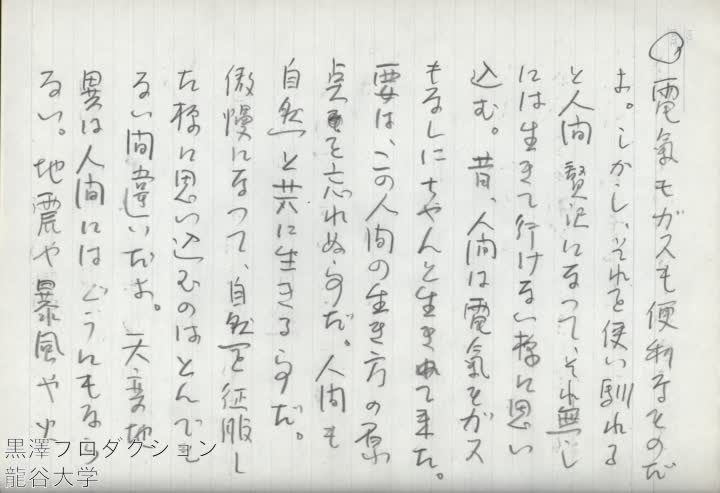 電氣もガスも便利なものだ
よ。しかし、それを使い馴れる
と人間贅沢になって、それ無し
には生きて行けない様に思い
込む。昔、人間は電氣もガス
もなしにちゃんと生きて来た。
要は、この人間の生き方の原
点を忘れぬ事だ。人間も
自然と共に生きる事だ。
傲慢になって、自然を征服し
た様に思い込むのはとんでも
ない間違いだよ。天変地
異は人間にはどうにもなら
ない。地震や暴風や火
黒澤プロダクション
龍谷大学